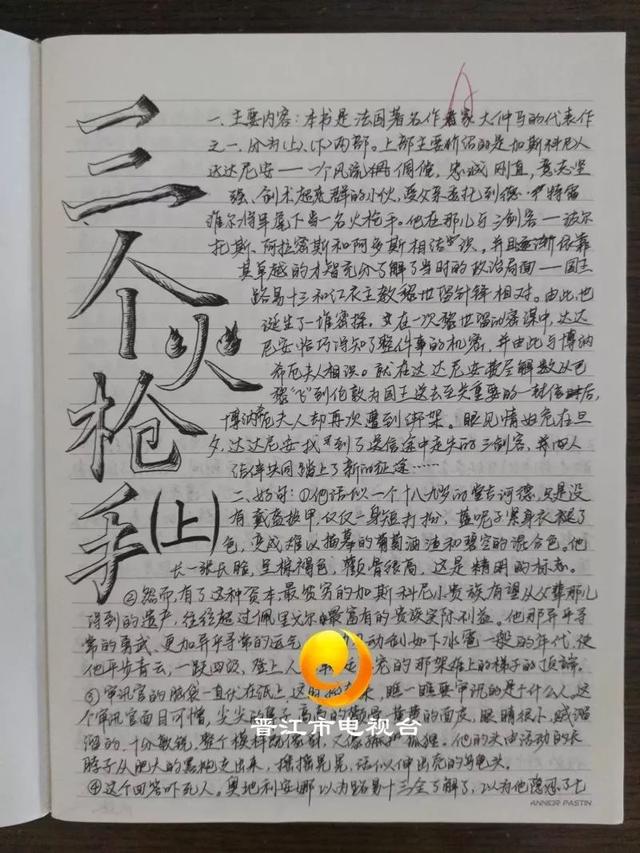 三个火枪手(上)
一、主要内容：本书是法国著名作家大仲马的代表作
之一，分为(上)、(下)两部。上部主要介绍的是加斯科尼人
达达尼安——一个风流倜傥，忠诚刚直，意志坚
强、剑术超群的小伙，受父亲委托到德·特雷
维尔将军麾下当一名火枪手。他在那儿与三剑客——波尔
托斯、阿拉密斯和阿多斯相结识。并且逐渐依靠
其卓越的才智充分了解了当时的政治局面——国王
路易十三和红衣主教黎世留针锋相对。由此，也
诞生了一堆密探。又在一次黎世留的密谋中，达达
尼安恰巧得知了整件事的机密，并由此与博纳
希尼夫人相识。就在达达尼安费尽解数以已
“飞”到伦敦为国王送去至关重要的一封信时后，
博纳希尼夫人却再次遭到绑架。眼见情妇危在旦
夕，达达尼安找到了送信途中走失的三剑客，并四人
结伴共同踏上了新的征途……
二、好句：①他活似一个十八九岁的堂吉诃德，只是没
有戴盔披甲，仅仅一身短打扮，蓝呢子紧身衣褪了
色，变成难以描摹的葡萄酒渣和碧空的混合色。他
长一张长脸，呈棕褐色，颧骨很高，这是精明的标志。
②然而有了这种资本，最贫穷的加斯科尼小贵族有望从父辈那儿
得到的遗产，往往超过佩里戈尔最富有的贵族实际利益。他那异乎寻
常的勇武、更加异乎寻常的运气 动剑如下冰雹一般的年代，使
他平步青云，一跃四级，登上人 宠的那架难上的梯子的顶端。
③审讯官的脑袋一直伏在纸上，这时抬 来，瞧一瞧要审讯的是个什么人。这
个审讯官面目可憎，尖尖的鼻子，高高的颧骨，黄黄的面皮，眼睛很小，贼溜
溜的，十分敏锐，整个模样既像 ，又像狐狸。他的头由活动的长
脖子从肥大的黑袍支出来，摇摇晃晃，活似伸出壳的乌龟头。
④这个回答吓死人。奥地利安娜以为路易十三全了解了，以为他隐忍了七
晋江市电视台
ANNER PASTIN